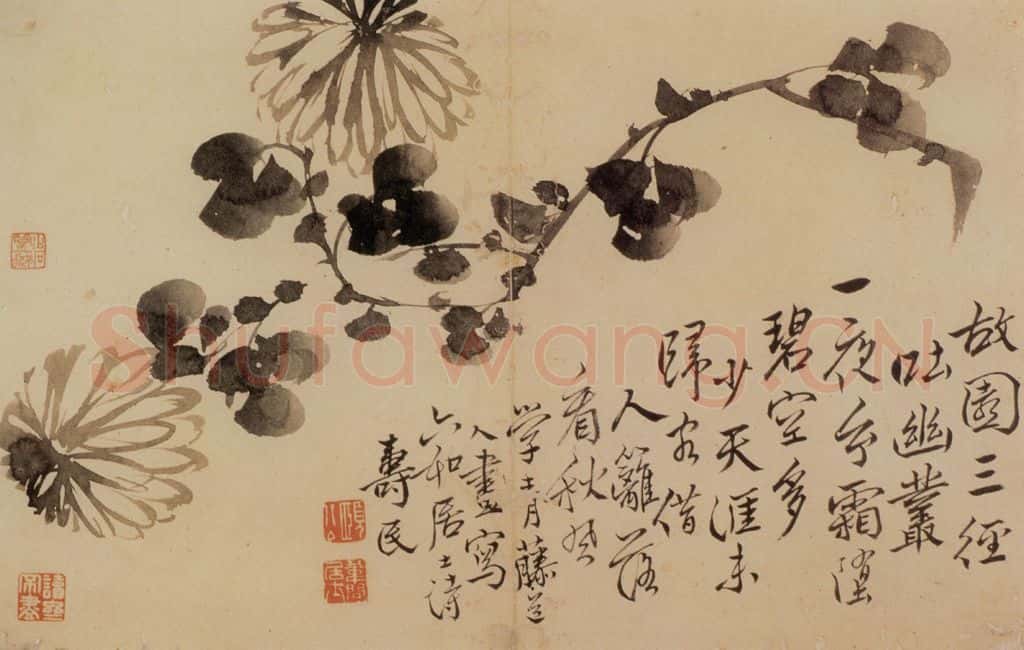 故園三徑
吐幽叢
一夜玄霜墜
碧空多
少天涯未
歸客借
人籬落
看秋風
学青藤道
人畫並寫
六如居士詩
壽民
Shufawang.CN